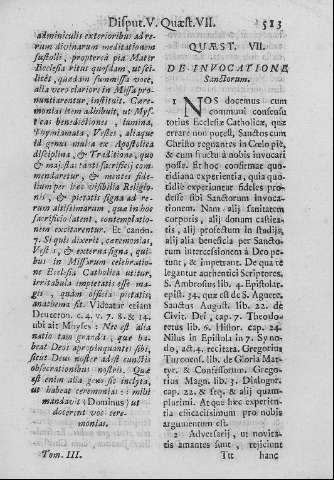 Disput. V. Quæst. VII. 513
adminiculis exterioribus ad re-
rum divinarum meditationem
sustolli, propterea pia Mater
Ecclesia ritus quosdam, ut sci-
licet, quædam summissa voce,
alia vero clariore in Missa pro-
nuntiarentur, instituit. Cære-
monias item adhibuit, ut Mys-
ticas benedictiones, lumina,
Thymiamata, Vestes, aliaque
id genus multa ex Apostolica
disciplina, & Traditione, quo
& majestas tanti sacrificii com-
mendaretur, & mentes fide-
lium per hæc visibilia Religio-
nis, & pietatis signa ad re-
rum altissimarum, quæ in hoc
sacrificio latent, contemplatio-
nem excitarentur. Et canon.
7. Si quis dixerit, cæremonias,
Vestes, & externa signa, qui-
bus in Missarum celebratio-
ne Ecclesia Catholica utitur,
irritabula impietatis esse ma-
gis, quàm officia pietatis,
anathema sit. Videatur etiam
Deuteron. c. 4. v. 7. 8. & 14.
ubi ait Moyses: Nec est alia
natio tam grandis, quæ ha-
beat Deos apropinquantes sibi,
sicut Deus noster adest cunctis
obsecrationibus nostris. Quæ
est enim alia gens sic inclyta,
ut habeat cæremonias: mihi
mandavit (Dominus) ut
docerem vos cære-
monias.
Tom. III.
QUÆST. VII.
DE INVOCATIONE
Sanctorum.
1 NOS docemus cum
communi consensu
totius Ecclesiæ Catholicæ, quæ
errare non potest, Sanctos cum
Christo regnantes in Cœlo piè,
& cum fructu à nobis invocari
posse. Et hoc confirmat quo-
tidiana experientia, quia quo-
tidie experiuntur fideles pro-
desse sibi Sanctorum invoca-
tionem. Nam alij sanitatem
corporis, alij donum castita-
tis, alij profectum in studijs,
alij alia beneficia per Sancto-
rum intercessionem à Deo pe-
tunt, & impetrant. De qua re
legantur authentici Scriptores.
S. Ambrosius lib. 4. Epistolar.
epist. 34. quæ est de S. Agnete.
Sanctus August. lib. 22. de
Civit. Dei, cap. 7. Theodo-
retus lib. 6. Histor. cap. 24.
Nilus in Epistola in 7. Syno-
do, act. 4. recitata. Gregorius
Turonens. lib. de Gloria Mar-
tyr. & Confessorum. Gregorius
Magn. lib. 3. Dialogor.
cap. 22. & seq. & alij quam-
plurimi. At que hæc experien-
tia efficacissimum pro nobis
argumentum est.
2 Adversarij, ut novita-
tis amantes sunt, rejiciunt
Ttt hanc